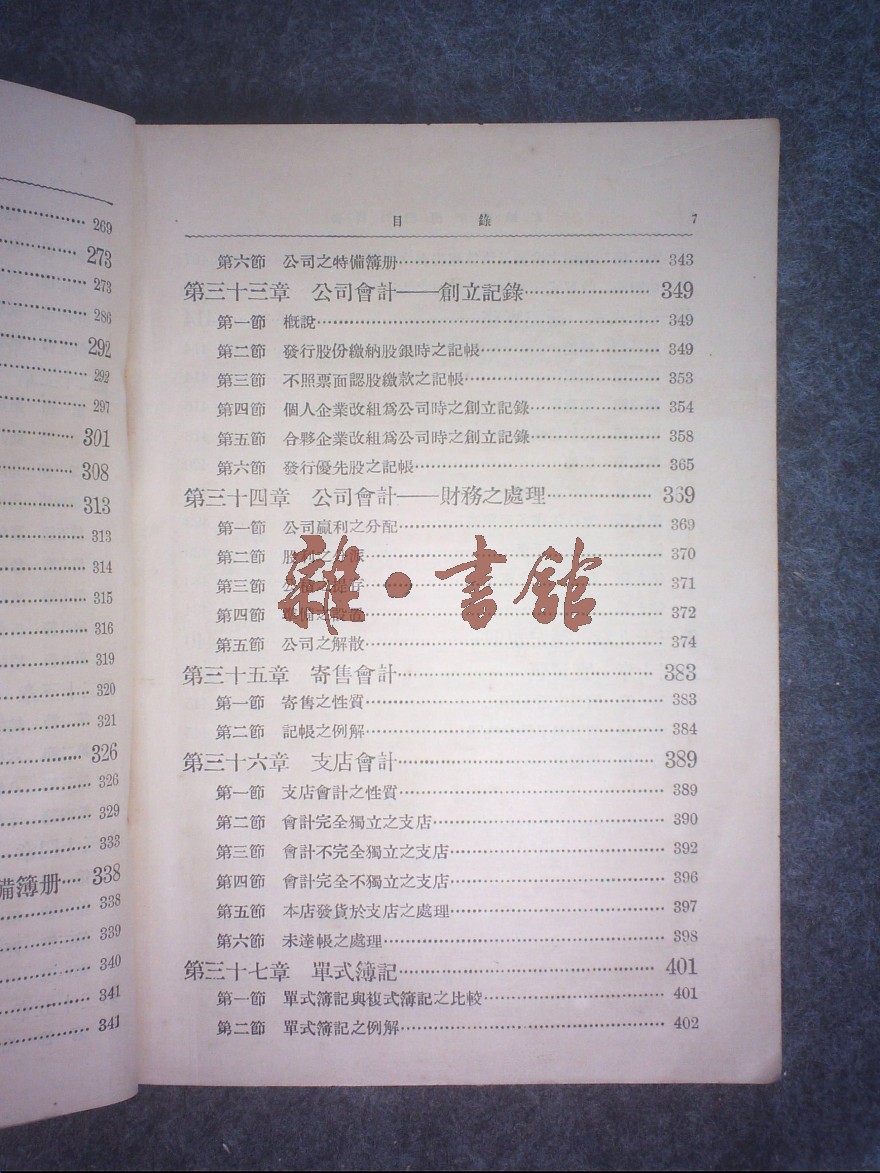 269
273
273
286
292
292
297
301
308
313
313
314
315
316
319
320
321
326
326
329
333
備簿册…… 338
338
339
340
341
341
目錄 7
第六節 公司之特備簿册…… 343
第三十三章 公司會計——創立記錄…… 349
第一節 概說…… 349
第二節 發行股份繳納股銀時之記帳…… 349
第三節 不照票面認股繳款之記帳…… 353
第四節 個人企業改組爲公司時之創立記錄…… 354
第五節 合夥企業改組爲公司時之創立記錄…… 358
第六節 發行優先股之記帳…… 365
第三十四章 公司會計——財務之處理…… 369
第一節 公司贏利之分配…… 369
第二節 股利之分派…… 370
第三節 公積之提存…… 371
第四節 準備之設置…… 372
第五節 公司之解散…… 374
第三十五章 寄售會計…… 383
第一節 寄售之性質…… 383
第二節 記帳之例解…… 384
第三十六章 支店會計…… 389
第一節 支店會計之性質…… 389
第二節 會計完全獨立之支店…… 390
第三節 會計不完全獨立之支店…… 392
第四節 會計完全不獨立之支店…… 396
第五節 本店發貨於支店之處理…… 397
第六節 未達帳之處理…… 398
第三十七章 單式簿記…… 401
第一節 單式簿記與複式簿記之比較…… 401
第二節 單式簿記之例解…… 402
雜·書館